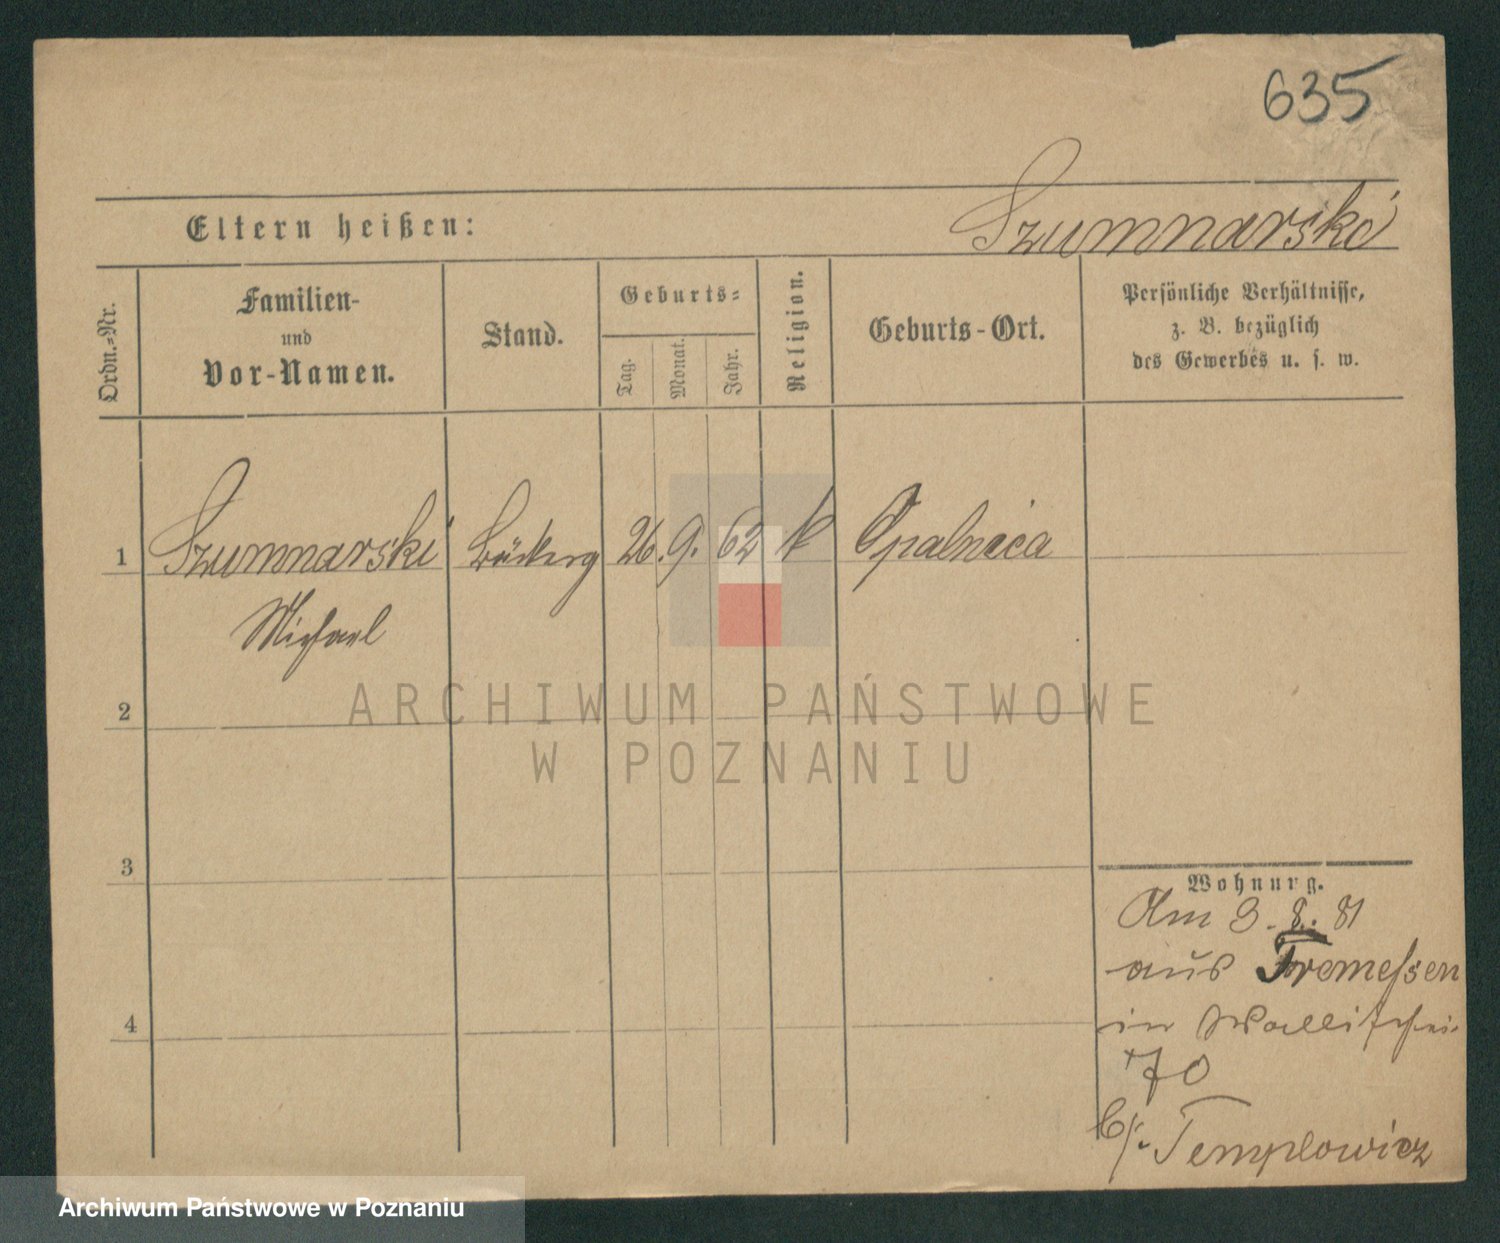 635
Eltern heißen:
Szumnarski
Ordn.=Nr.
Familien-
und
Vor-Namen.
Stand.
Geburts=
Tag.
Monat.
Jahr.
Religion.
Geburts-Ort.
Persönliche Verhältnisse,
z. B. bezüglich
des Gewerbes u. s. w.
1 Szumnarski Bäckerg 26. 9. 62 k Opalnica
Michael
2
ARCHIWUM PAŃSTWOWE
W POZNANIU
3
Wohnung.
Am 3. 8. 81
aus Tremessen
4
in Wallischei
70
b/. Templowicz
Archiwum Państwowe w Poznaniu